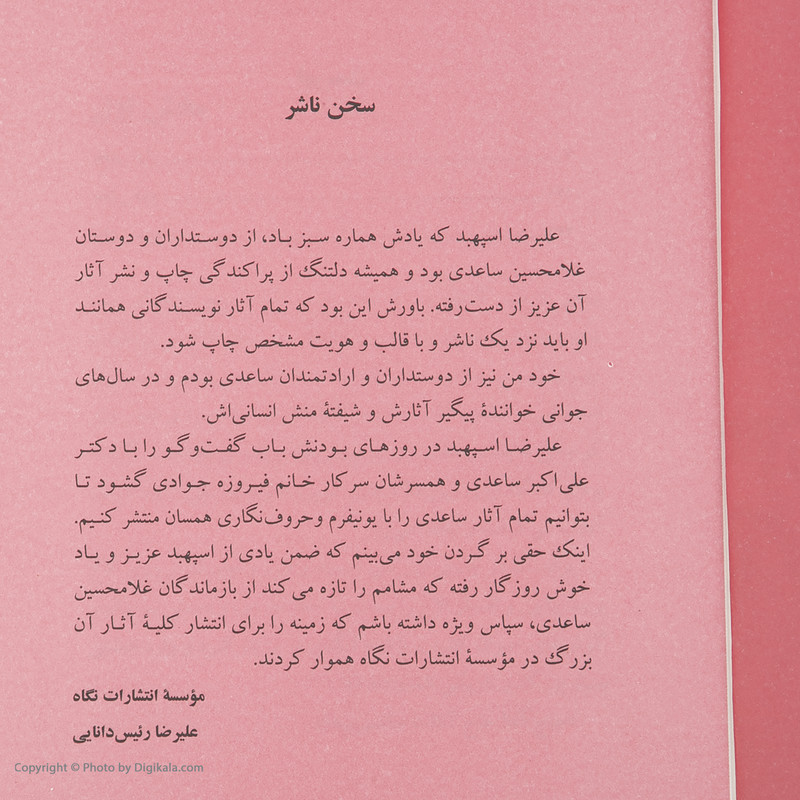 سخن ناشر
علیرضا اسپهبد که یادش هماره سبز باد، از دوستداران و دوستان
غلامحسین ساعدی بود و همیشه دلتنگ از پراکندگی چاپ و نشر آثار
آن عزیز از دست‌رفته. باورش این بود که تمام آثار نویسندگانی همانند
او باید نزد یک ناشر و با قالب و هویت مشخص چاپ شود.
خود من نیز از دوستداران و ارادتمندان ساعدی بودم و در سال‌های
جوانی خوانندهٔ پیگیر آثارش و شیفتهٔ منش انسانی‌اش.
علیرضا اسپهبد در روزهای بودنش باب گفت‌وگو را با دکتر
علی‌اکبر ساعدی و همسرشان سرکار خانم فیروزه جوادی گشود تا
بتوانیم تمام آثار ساعدی را با یونیفرم وحروف‌نگاری همسان منتشر کنیم.
اینک حقی بر گردن خود می‌بینم که ضمن یادی از اسپهبد عزیز و یاد
خوش روزگار رفته که مشامم را تازه می‌کند از بازماندگان غلامحسین
ساعدی، سپاس ویژه داشته باشم که زمینه را برای انتشار کلیهٔ آثار آن
بزرگ در مؤسسهٔ انتشارات نگاه هموار کردند.
مؤسسهٔ انتشارات نگاه
علیرضا رئیس‌دانایی
Copyright © Photo by Digikala.com